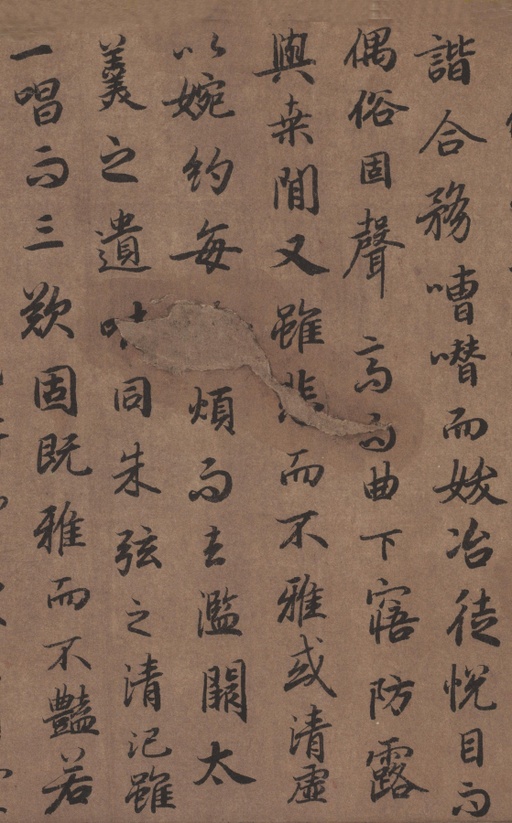 諧合務嘈囋而妖冶徒悅目而
偶俗固聲高而曲下寤防露
與桑閒又雖悲而不雅或清虛
以婉約每煩而去濫闕太
羹之遺味同朱弦之清汜雖
一唱而三歎固既雅而不豔若